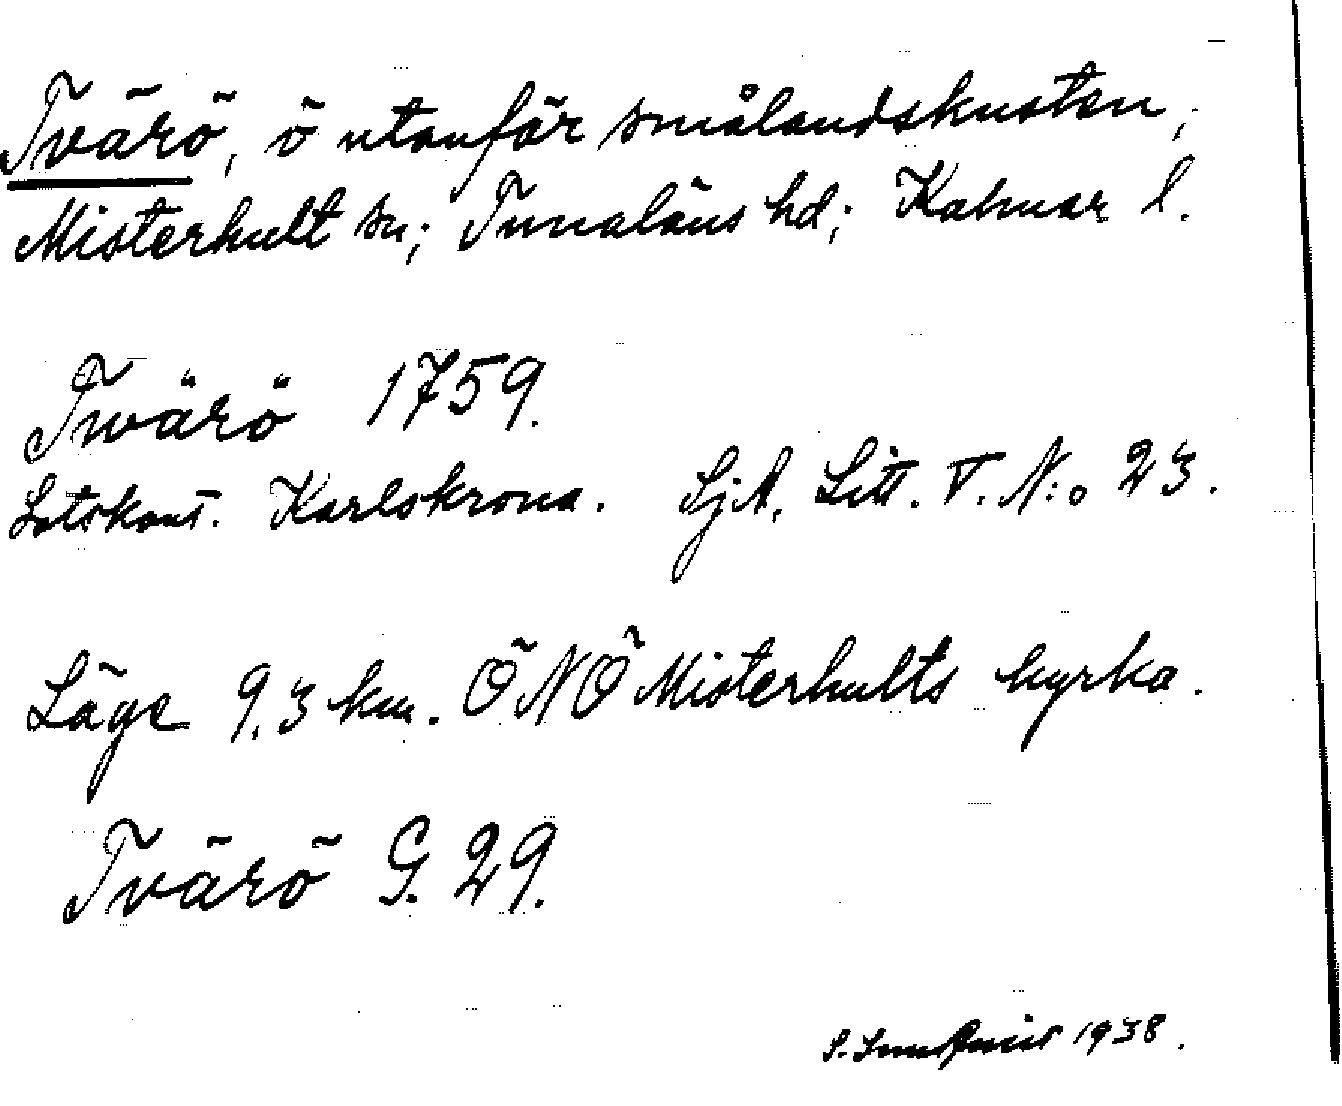 Tvärö, ö utanför smålandskusten,
Misterhult sn; Tunaläns hd; Kalmar l.
Twärö 1759.
Lotskont. Karlskrona. SjA, Litt. T. N:o 23.
Läge 9,3 km. ÖNÖ Misterhults kyrka.
Tvärö G. 29.
1938.